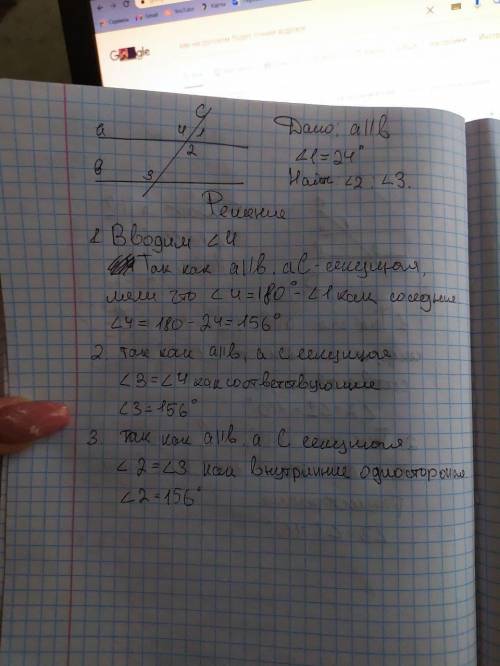 Google
Gmail
YouTube
Карты
c
a
4
1
2
в
3
Дано: a||b
∠1=24°
Найти ∠2; ∠3.
Решение
1. Вводим ∠4
Так как a||b, а С - секущая,
∠4=180°-∠1 как соседние
∠4=180-24=156°
2. Так как a||b, а С секущая
∠3=∠4 как соответствующие
∠3=156°
3. Так как a||b, а С секущая.
∠2=∠3 как внутринние одностороние
∠2=156°